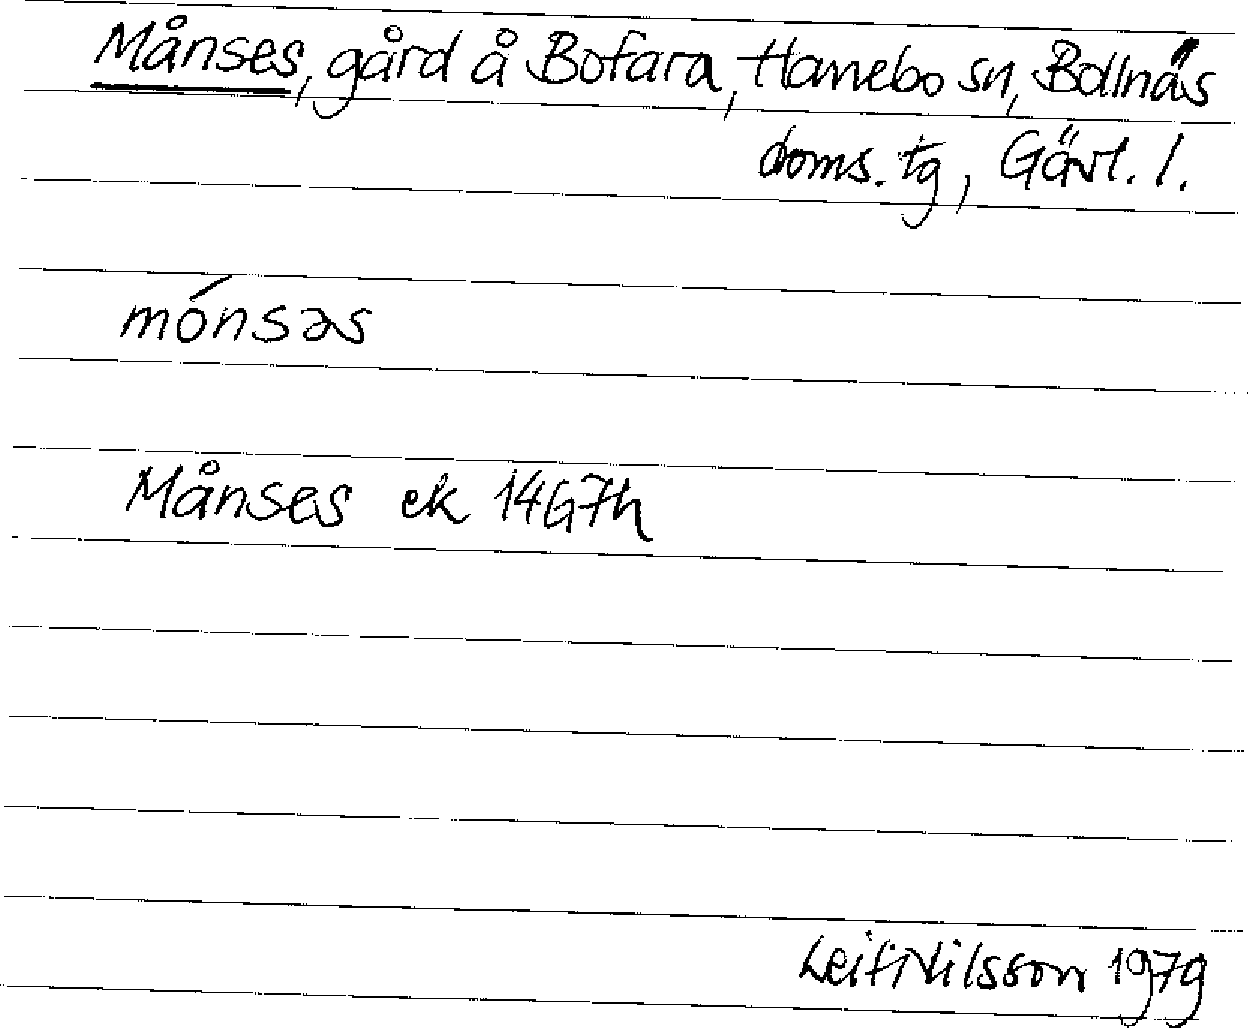 Månses, gård å Bofara, Hanebo sn, Bollnäs
doms. tg, Gävl. l.
mónsəs
Månses ek 14G7h
Leif Nilsson 1979